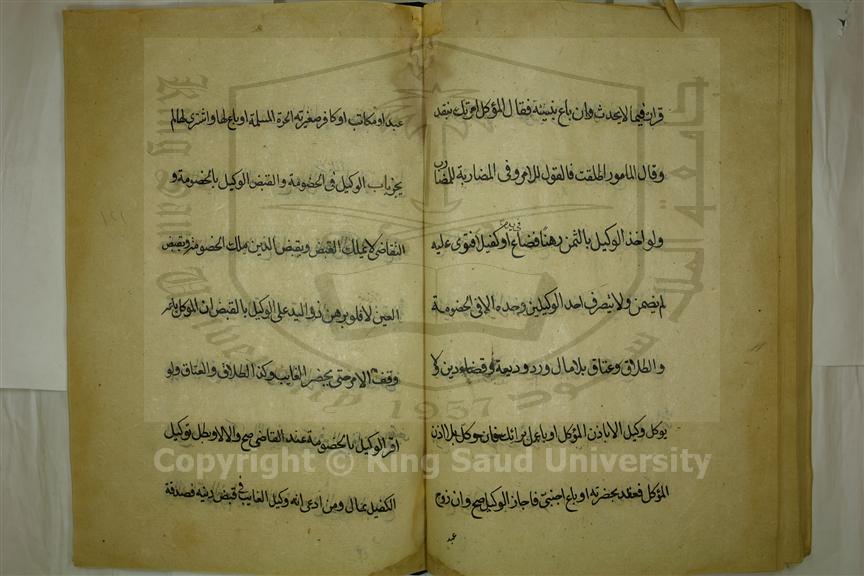 قران فيما لا يحدث وان باع بنسيئة فقال المؤكل امرتك بنقد
وقال المامور اطلقت فالقول للامر وفى المضاربة للمضارب
ولو اخذ الوكيل بالثمن رهنا فضاع او كفيلا فتوى عليه
لم يضمن ولا يتصرف احد الوكيلين وحده الا فى الخصومة
والطلاق وعتاق بلا مال ورد وديعة وقضاء دين ولا
يوكل وكيل الا باذن المؤكل او باعمل برائك فان وكل بلا اذن
المؤكل فعقد بحضرته او باع اجنبى فاجاز الوكيل صح وان زوج
عبد
عبد او مكاتب او كافر صغيرته الحرة المسلمة او باع لها واشترى لها لم
يجز باب الوكيل فى الخصومة والقبض الوكيل بالخصومة و
التقاضى لا يملك القبض وبقبض الدين ملك الخصومة وبقبض
العين لا فلو برهن ذو اليد على الوكيل بالقبض ان المؤكل باعه
وقف الامر حتى يحضر الغايب وكذا الطلاق والعتاق ولو
اقر الوكيل بالخصومة عند القاضى صح والا لا وبطل توكيل
الكفيل بمال ومن ادعى انه وكيل الغايب فى قبض دينه فصدقه
Copyright © King Saud University
1957